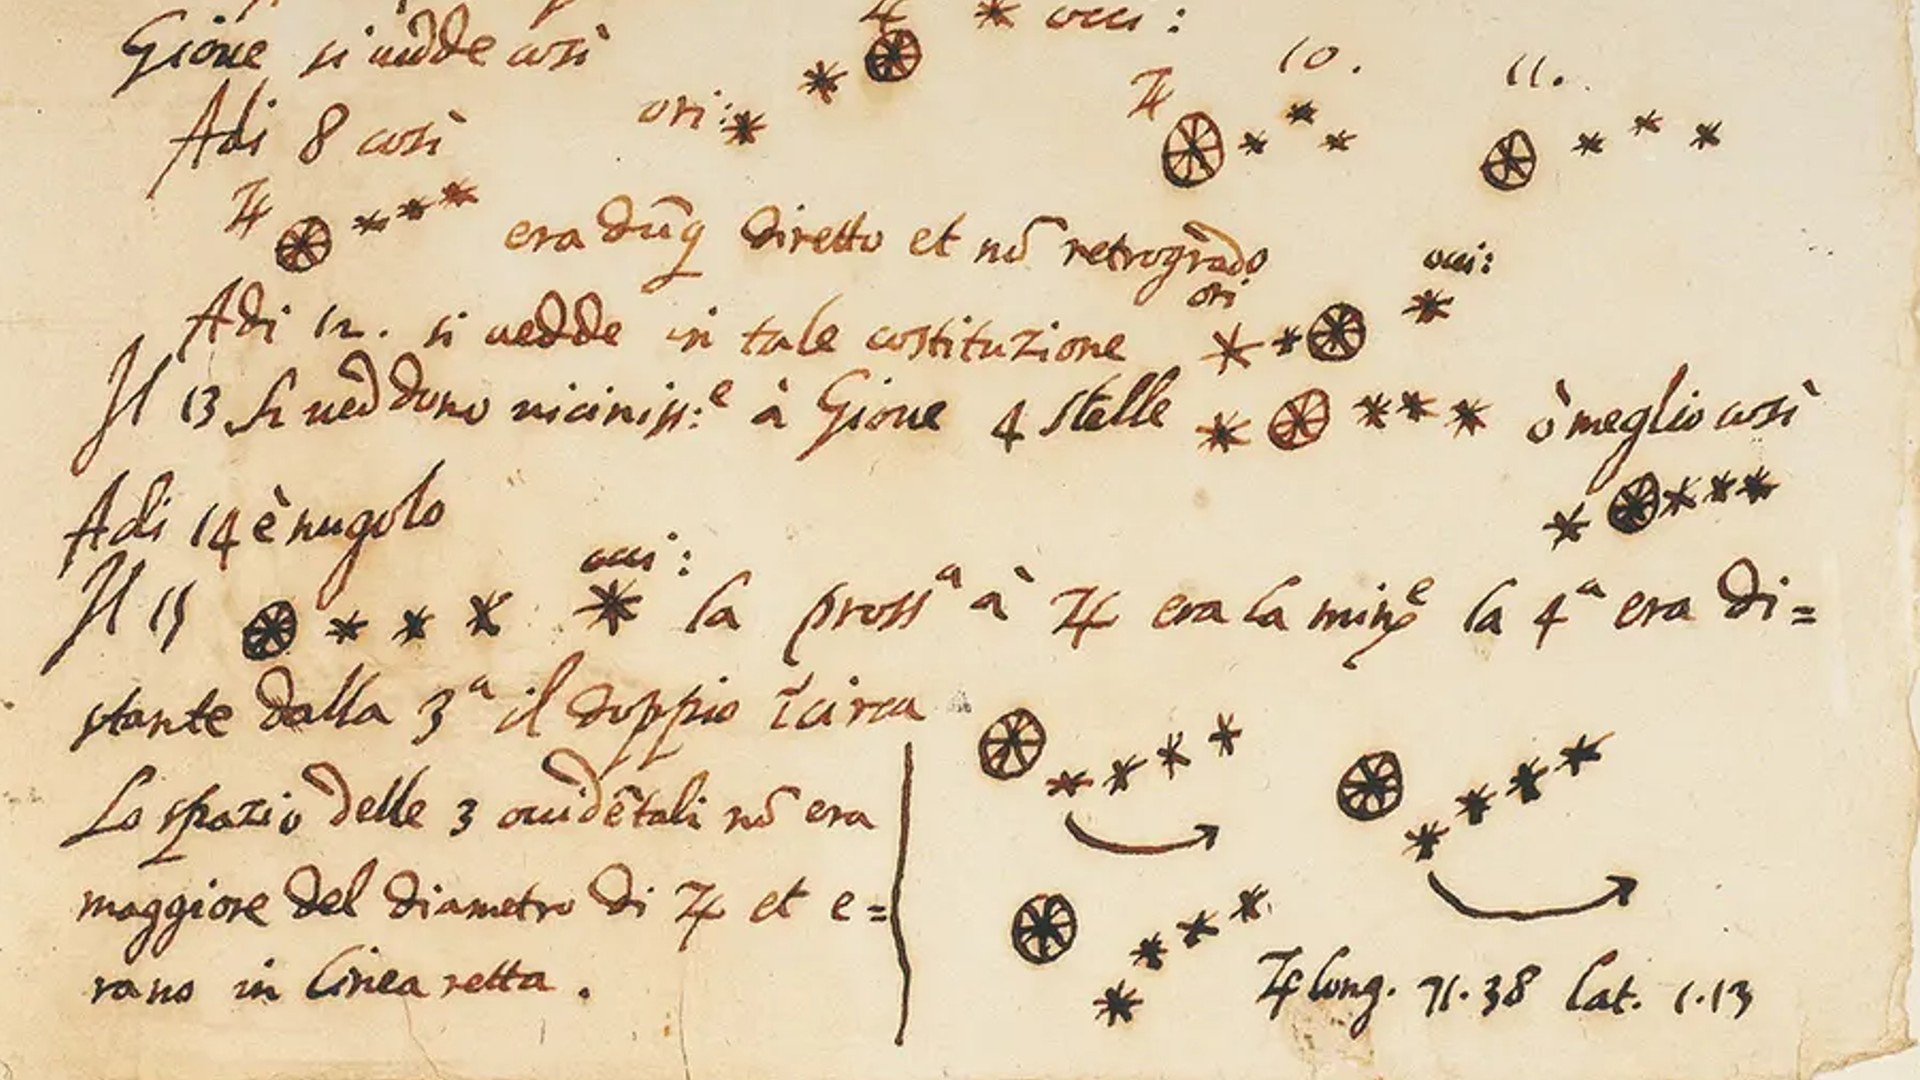 ♃ * occi:
Gioue si uedde così
Adi 8 così ori:
♃ 10. 11.
♃ era dũq diretto et nõ retrogrado
occi:
ori
Adi 12. si uedde in tale costituzione
Il 13 si ueddono uiciniss:ᵉ à Gioue 4 stelle ò meglio così
Adi 14 è nugolo
occi:
Il 15 la prossᵃ à ♃ era la minᵉ la 4ᵃ era di=
stante dalla 3ᵃ il doppio ĩcirca
Lo spazio delle 3 ouidẽtali nõ era
maggiore del diametro di ♃ et e=
rano in linea retta.
♃ long. 71.38 lat. 1.13